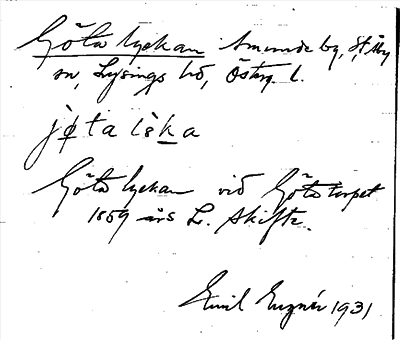 Göta lyckan Amunde by, St. Åby
sn, Lysings hd, Österg. l.
jø̀ta ìska
Göta lyckan vid Göta torpet
1859 års L. Skifte.
Emil 1931